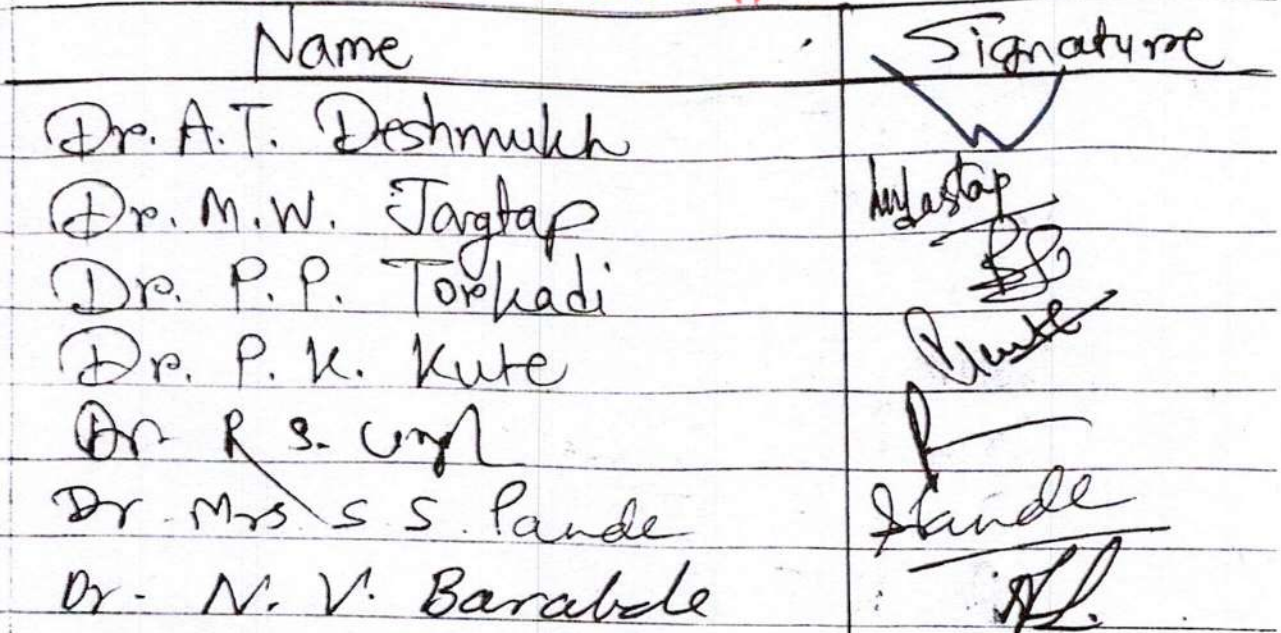 Name Signature
Dr. A.T. Deshmukh
Dr. M.W. Jagtap
Dr. P.P. Torkadi
Dr. P.K. Kute
Dr R S.
Dr Mrs S S. Pande
Dr. N. V. Barabde